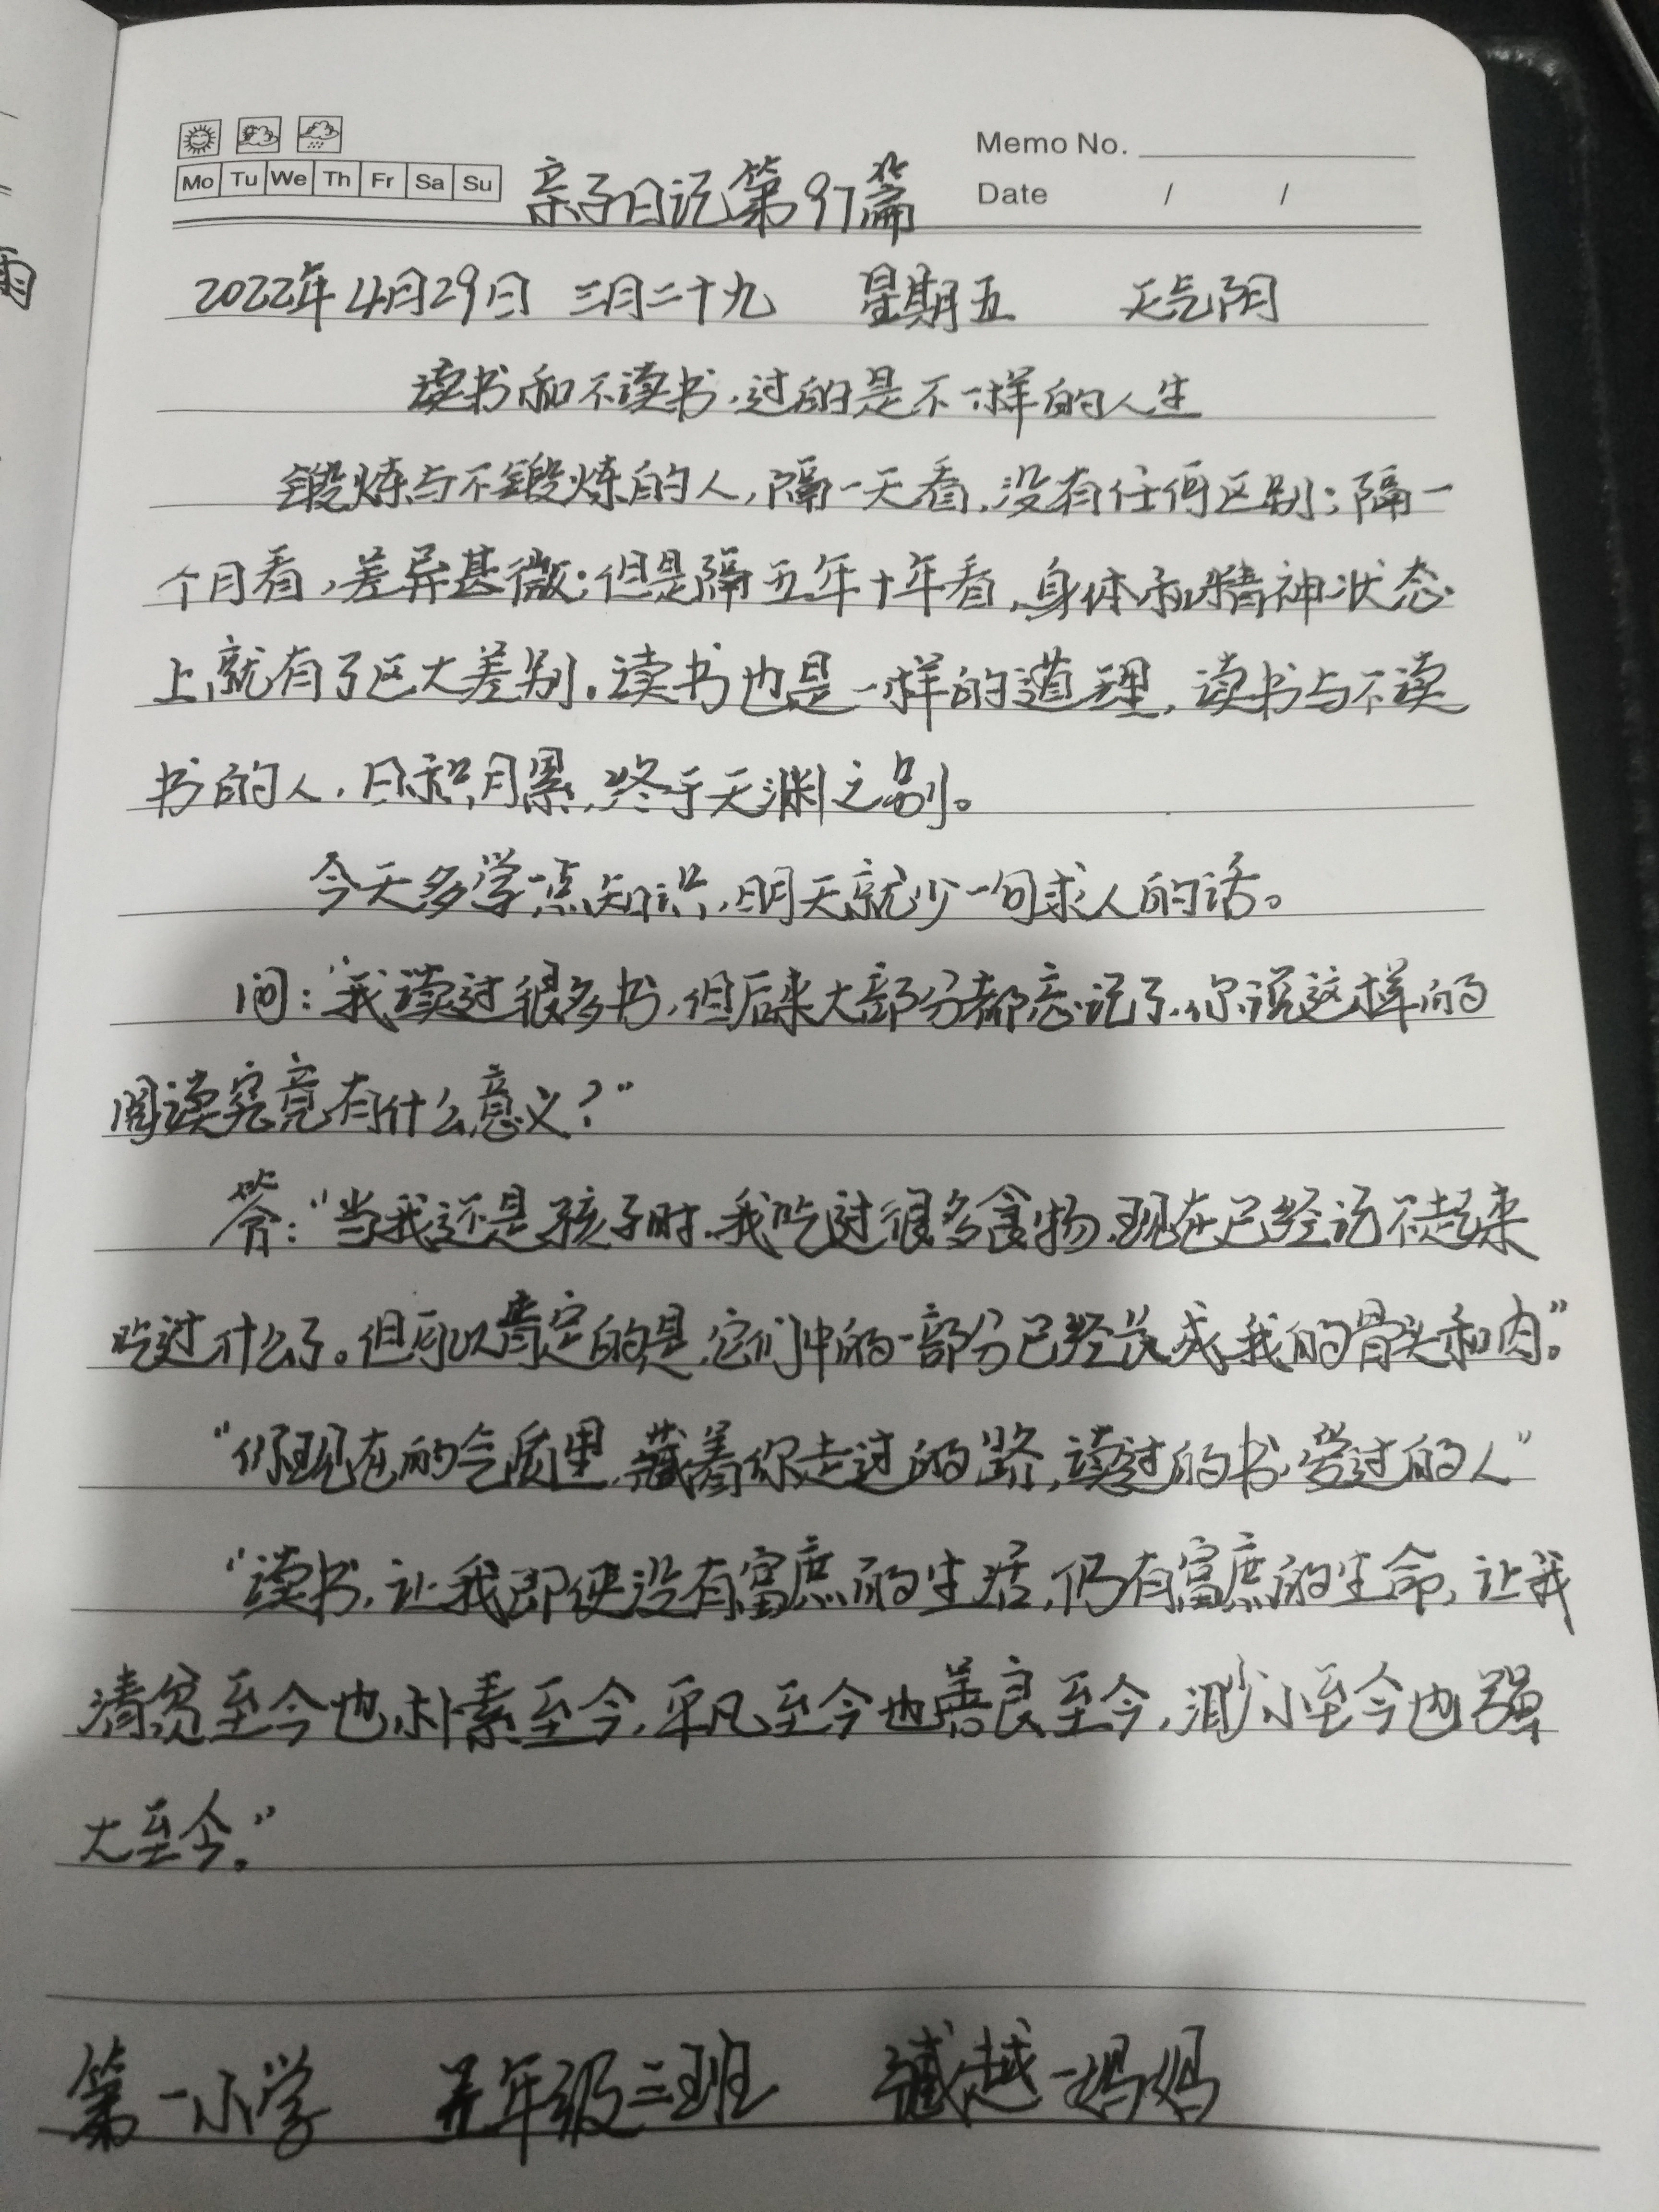 Memo No.
Mo Tu We Th Fr Sa Su
亲子日记第97篇
Date / /
2022年4月29日 三月二十九 星期五 天气阴
读书和不读书,过的是不一样的人生
锻炼与不锻炼的人,隔一天看,没有任何区别;隔一
个月看,差异甚微;但是隔五年十年看,身体和精神状态
上就有了巨大差别。读书也是一样的道理,读书与不读
书的人,日积月累,终于天渊之别。
今天多学一点知识,明天就少一句求人的话。
问:“我读过很多书,但后来大部分都忘记了,你说这样的
阅读究竟有什么意义?”
答:“当我还是孩子时,我吃过很多食物,现在已经记不起来
吃过什么了。但可以肯定的是,它们中的一部分已经长成我的骨头和肉。”
“你现在的气质里,藏着你走过的路,读过的书,爱过的人”
“读书,让我即使没有富庶的生活,仍有富庶的生命,让我
清贫至今也朴素至今,平凡至今也善良至今,渺小至今也强
大至今。”
第一小学 五年级三班 越妈妈
雨